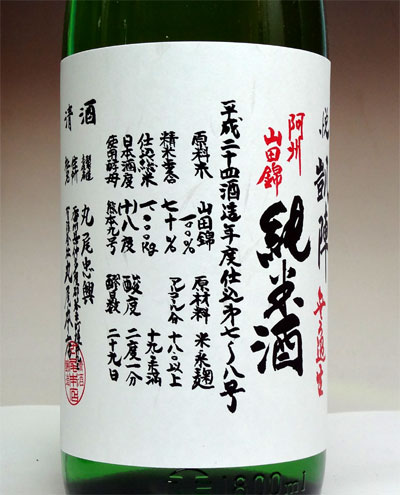 悦 凱陣 無ろ過生
阿州
山田錦
純米酒
平成二十四酒造年度仕込第七〜八号
原料米 山田錦 一〇〇% 原材料 米・米麹
精米歩合 七十% アルコール分 十八・〇以上
十九未満
仕込総米 一〇〇〇kg
日本酒度 +八度 酸度 二度一分
使用酵母 熊本九号 醪日数 二十九日
清酒
丸尾忠興
1800ml